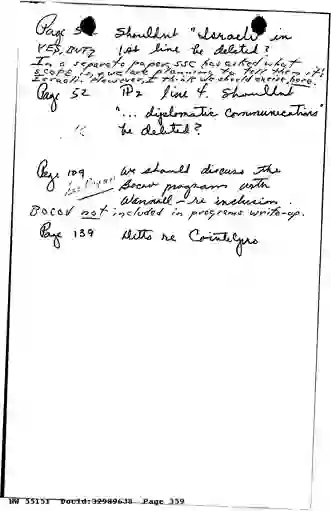 Page 52 Shouldnt "Israeli" in
YES, BUT? last line be deleted?
In a separate paper, SSC has asked what
SCOPE is, & we are planning to tell them it's
Israeli. However, I think we should excise here.
Page 52 ¶2 line 4. Shouldnt
"... diplomatic communications"
be deleted?
Page 109 we should discuss the
Bocov program with
Wannall - re inclusion.
BOCOV not included in programs write-up.
Page 139 Ditto re Cointelpro
NW 55151 DocId:32989638 Page 359